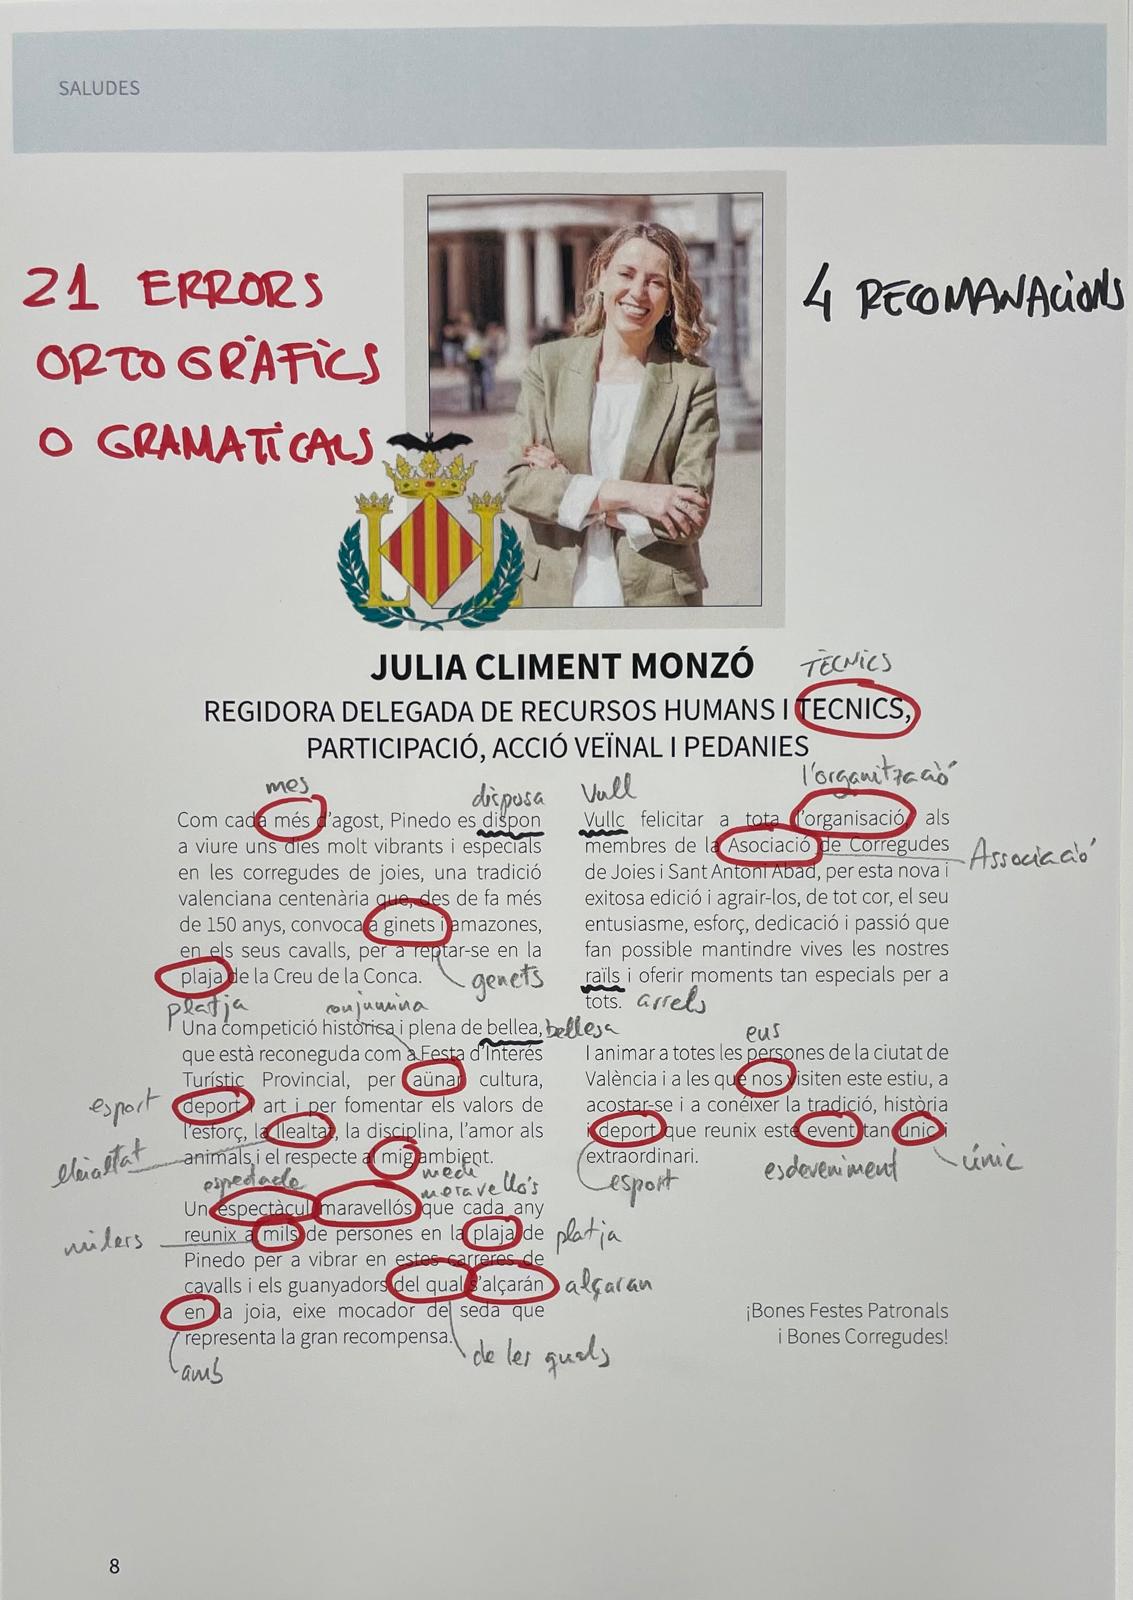 SALUDES
21 ERRORS
ORTOGRÀFICS
O GRAMATICALS
4 RECOMANACIONS
JULIA CLIMENT MONZÓ
TÈCNICS
REGIDORA DELEGADA DE RECURSOS HUMANS I TECNICS,
PARTICIPACIÓ, ACCIÓ VEÏNAL I PEDANIES
mes
disposa
Com cada més d'agost, Pinedo es dispon
a viure uns dies molt vibrants i especials
en les corregudes de joies, una tradició
valenciana centenària que, des de fa més
de 150 anys, convoca a ginets i amazones,
en els seus cavalls, per a reptar-se en la
plaja de la Creu de la Conca.
genets
platja
conjumina
Una competició històrica i plena de bellea,
bellesa
que està reconeguda com a Festa d'Interés
Turístic Provincial, per aünar cultura,
esport
deport, art i per fomentar els valors de
l'esforç, la llealtat, la disciplina, l'amor als
lleialtat
animals i el respecte al mig ambient.
medi
espectacle
meravellós
Un espectàcul maravellós que cada any
milers
reunix a mils de persones en la plaja de
platja
Pinedo per a vibrar en estes carreres de
cavalls i els guanyadors del qual s'alçarán
alçaran
en la joia, eixe mocador de seda que
representa la gran recompensa.
de les quals
amb
Vull
l'organització
Vullc felicitar a tota l'organisació, als
membres de la Asociació de Corregudes
Associació
de Joies i Sant Antoni Abad, per esta nova i
exitosa edició i agrair-los, de tot cor, el seu
entusiasme, esforç, dedicació i passió que
fan possible mantindre vives les nostres
raïls i oferir moments tan especials per a
tots.
arrels
eus
I animar a totes les persones de la ciutat de
València i a les que nos visiten este estiu, a
acostar-se i a conéixer la tradició, història
i deport que reunix este event tan unic i
extraordinari.
esport
esdeveniment
únic
¡Bones Festes Patronals
i Bones Corregudes!
8